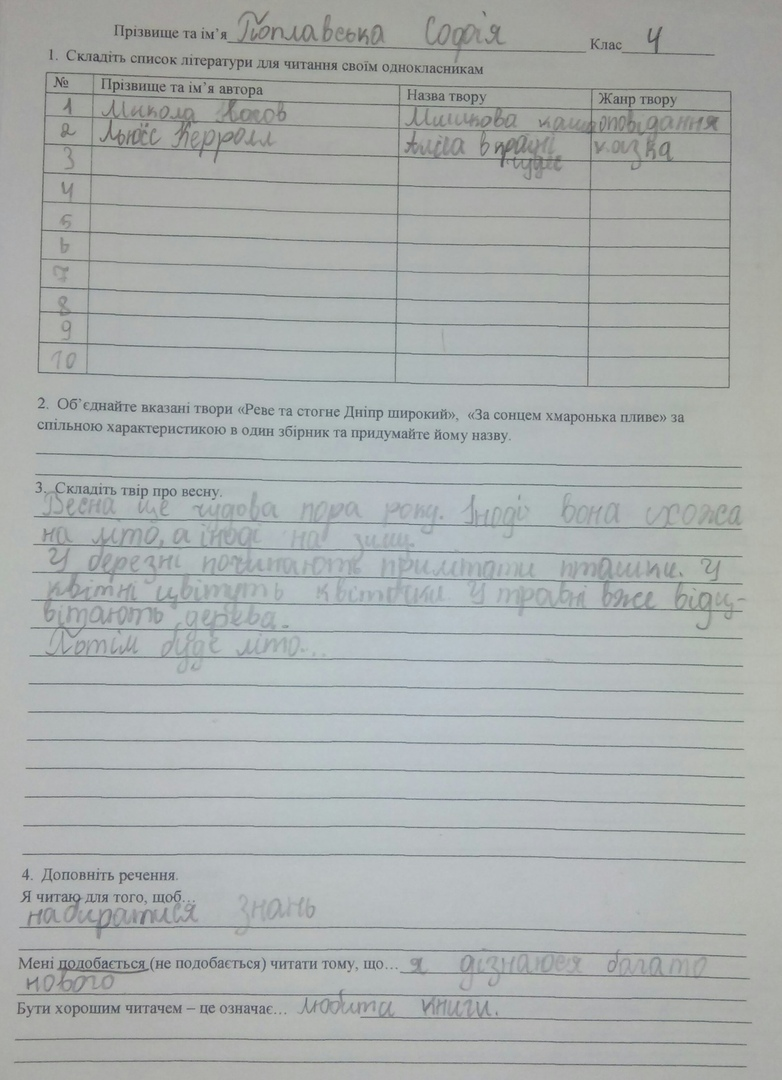 Прізвище та ім’я Поплавська Софія Клас 4
1. Складіть список літератури для читання своїм однокласникам
№ Прізвище та ім’я автора Назва твору Жанр твору
1 Микола Носов Мишкова каша оповідання
2 Льюїс Керролл Аліса в країні чудес казка
3
4
5
6
7
8
9
10
2. Об’єднайте вказані твори «Реве та стогне Дніпр широкий», «За сонцем хмаронька пливе» за
спільною характеристикою в один збірник та придумайте йому назву.
3. Складіть твір про весну.
Весна це чудова пора року. Іноді вона схожа
на літо, а іноді на зиму.
У березні починають прилітати пташки. У
квітні цвітуть квіточки. У травні вже відц-
вітають дерева.
Потім буде літо...
4. Доповніть речення.
Я читаю для того, щоб…
набиратися знань
Мені подобається (не подобається) читати тому, що… я дізнаюся багато
нового
Бути хорошим читачем – це означає… любити книги.